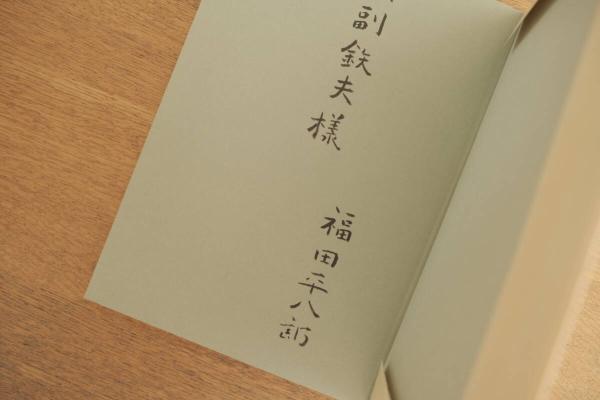 副鉄夫様
福田平八郎